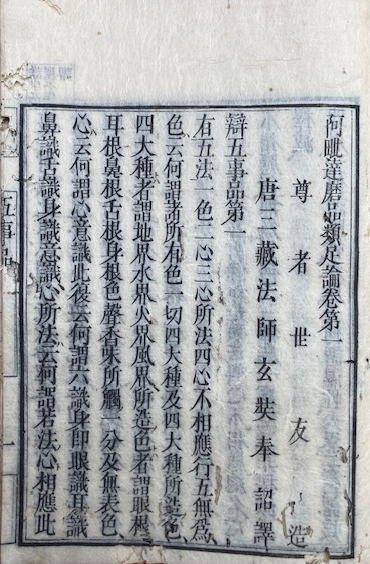 阿毗達磨品類足論卷第一
尊者世友造
唐三藏法師玄奘奉詔譯
辯五事品第一
有五法一色二心三心所法四心不相應行五無為
色云何謂諸所有色一切四大種及四大種所造色
四大種者謂地界水界火界風界所造色者謂眼根
耳根鼻根舌根身根色聲香味所觸一分及無表色
心云何謂心意識此復云何謂六識身即眼識耳識
鼻識舌識身識意識心所法云何謂若法心相應此